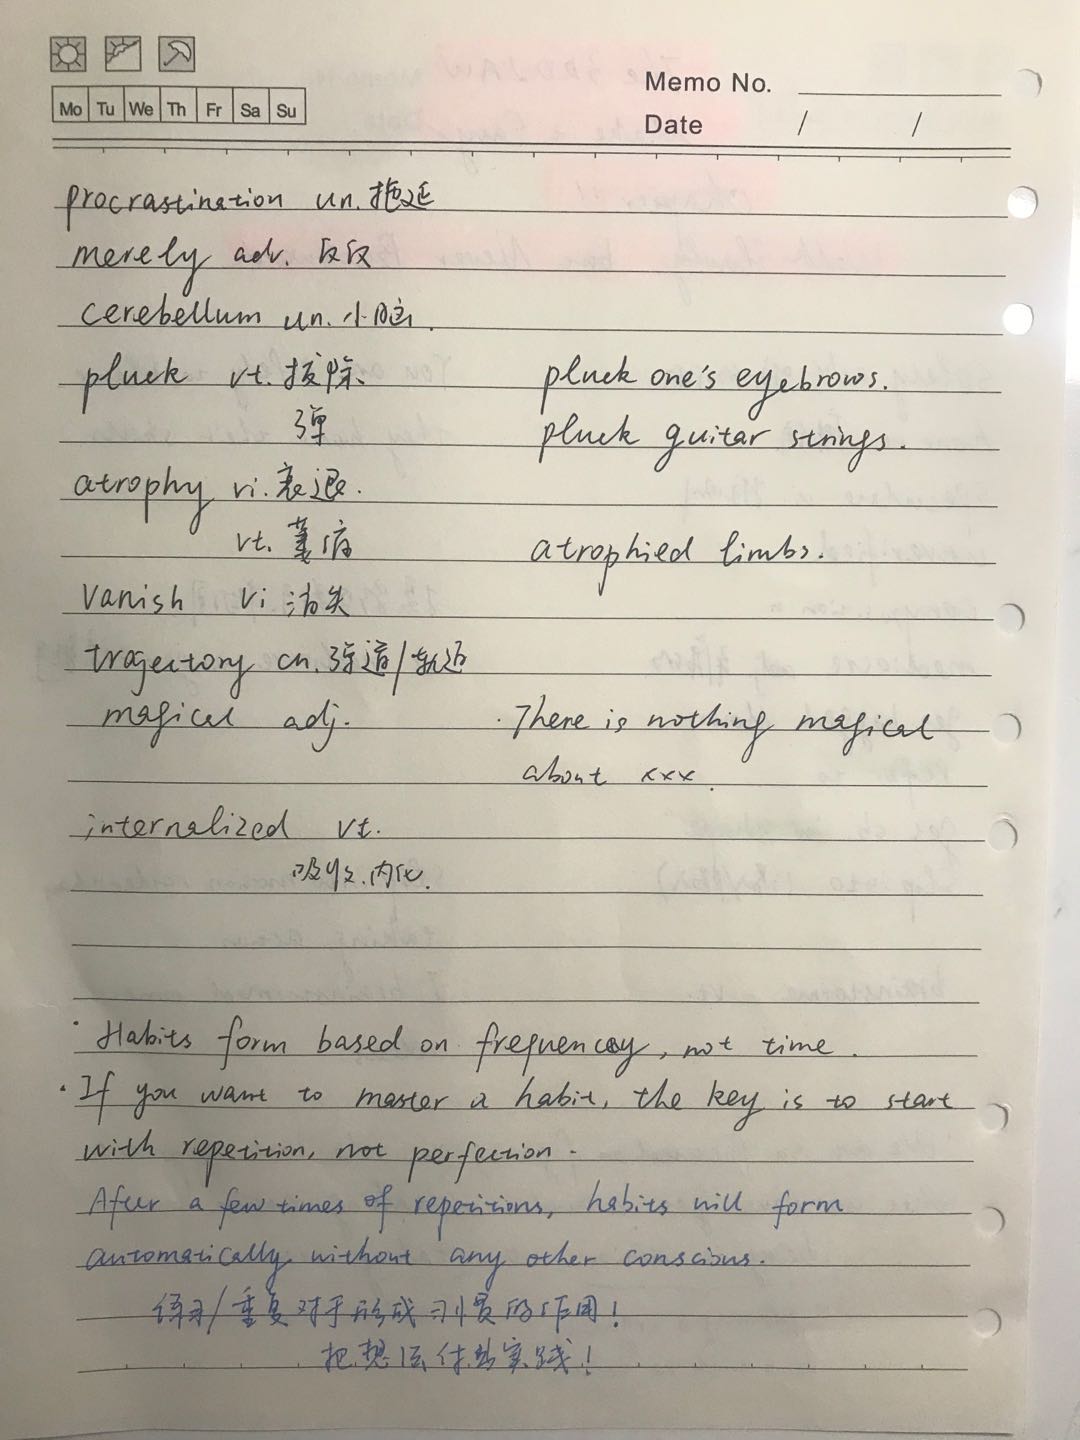 Memo No.
Mo Tu We Th Fr Sa Su
Date / /
procrastination un. 拖延
merely adv. 仅仅
cerebellum un. 小脑.
pluck vt. 拔除、 pluck one's eyebrows.
弹 pluck guitar strings.
atrophy vi. 衰退.
vt. 萎缩 atrophied limbs.
vanish vi 消失
tragectory cn. 弹道/轨迹
magical adj. There is nothing magical
about xxx.
internalized vt.
吸收.内化.
· Habits form based on frequency, not time.
· If you want to master a habit, the key is to start
with repetition, not perfection.
After a few times of repetitions, habits will form
automatically without any other conscious.
练习/重复对于形成习惯的作用!
把想法付出实践!